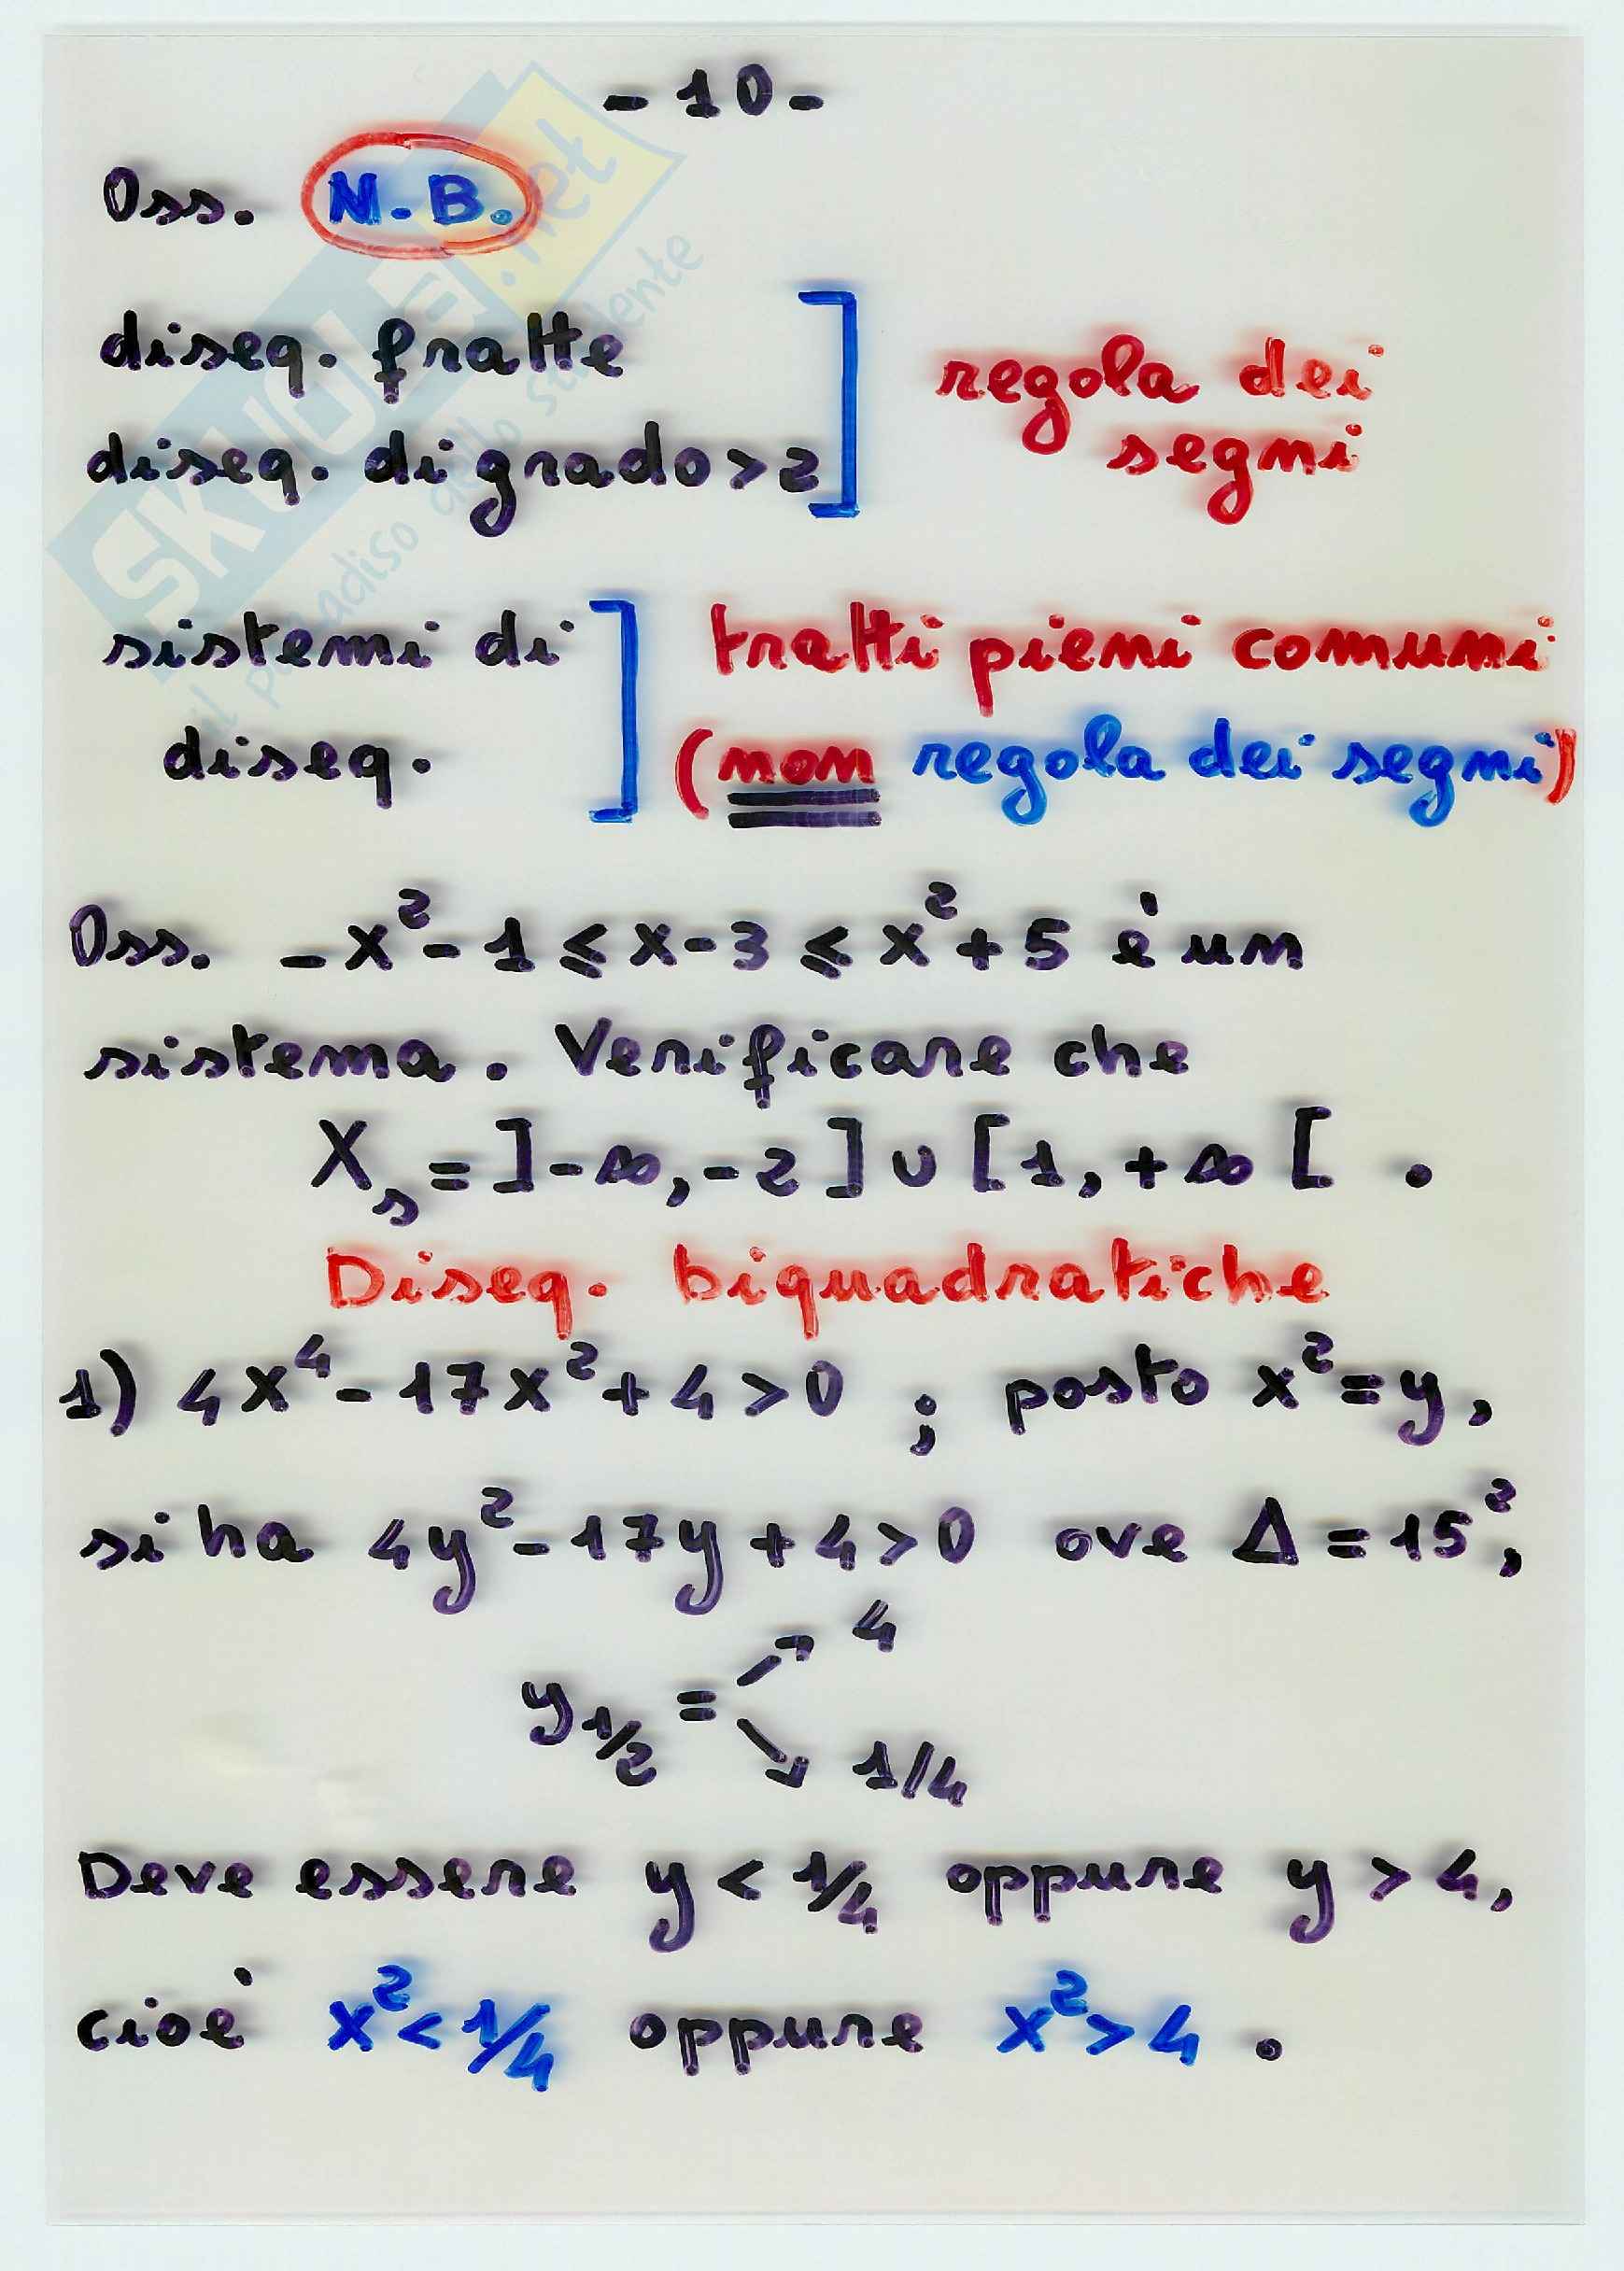 - 10 -
Oss. N.B.
diseq. fratte
diseq. di grado > 2
regola dei
segni
sistemi di
diseq.
tratti pieni comuni
(non regola dei segni)
Oss. -x²-1 ≤ x-3 ≤ x²+5 è un
sistema. Verificare che
Xₛ = ]-∞, -2] ∪ [1, +∞[ .
Diseq. biquadratiche
1) 4x⁴-17x²+4>0 ; posto x²=y,
si ha 4y²-17y+4>0 ove Δ=15²,
y1/2 = 4
1/4
Deve essere y < 1/4 oppure y > 4,
cioè x² < 1/4 oppure x² > 4 .
SKUOLA.net
il paradiso dello studente